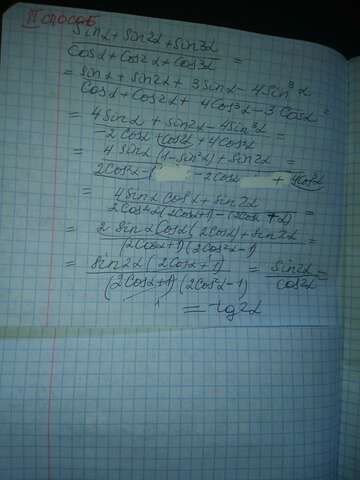 II способ
sinα + sin2α + sin3α / cosα + cos2α + cos3α =
= sinα + sin2α + 3sinα - 4sin³α / cosα + cos2α + 4cos³α - 3cosα =
= 4sinα + sin2α - 4sin³α / -2cosα + cos2α + 4cos³α =
= 4sinα(1 - sin²α) + sin2α / 2cos²α - 1 - 2cosα + 4cos³α =
= 4sinα cos²α + sin2α / 2cos²α(2cosα + 1) - (2cosα + 1) =
= 2sinα cosα(2cosα) + sin2α / (2cosα + 1)(2cos²α - 1) =
= sin2α(2cosα + 1) / (2cosα + 1)(2cos²α - 1) = sin2α / cos2α =
= tg2α